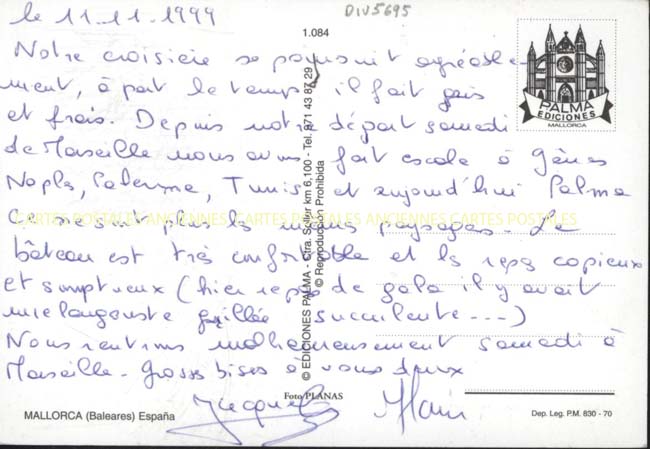 le 11.11.1999
DIV5695
1.084
Notre croisière se poursuit agréable-
ment, à part le temps il fait gris
et frais. Depuis notre départ samedi
de Marseille nous avons fait escale à Gênes
Naples, Palerme, Tunis et aujourd'hui Palma
Ce ne sont plus les mêmes paysages. Le
bateau est très confortable et les repas copieux
et somptueux (hier repas de gala il y avait
une langouste grillée succulente ---)
Nous rentrons malheureusement samedi à
Marseille. Grosses bises à vous deux
Jacqueline Alain
PALMA
EDICIONES
MALLORCA
© EDICIONES PALMA - Ctra. Sóller km 6,100 - Tel. 971 43 87 29
© Reproducción Prohibida
CARTES POSTALES ANCIENNES CARTES POSTALES ANCIENNES CARTES POSTALES
Foto PLANAS
MALLORCA (Baleares) España
Dep. Leg. P.M. 830 - 70